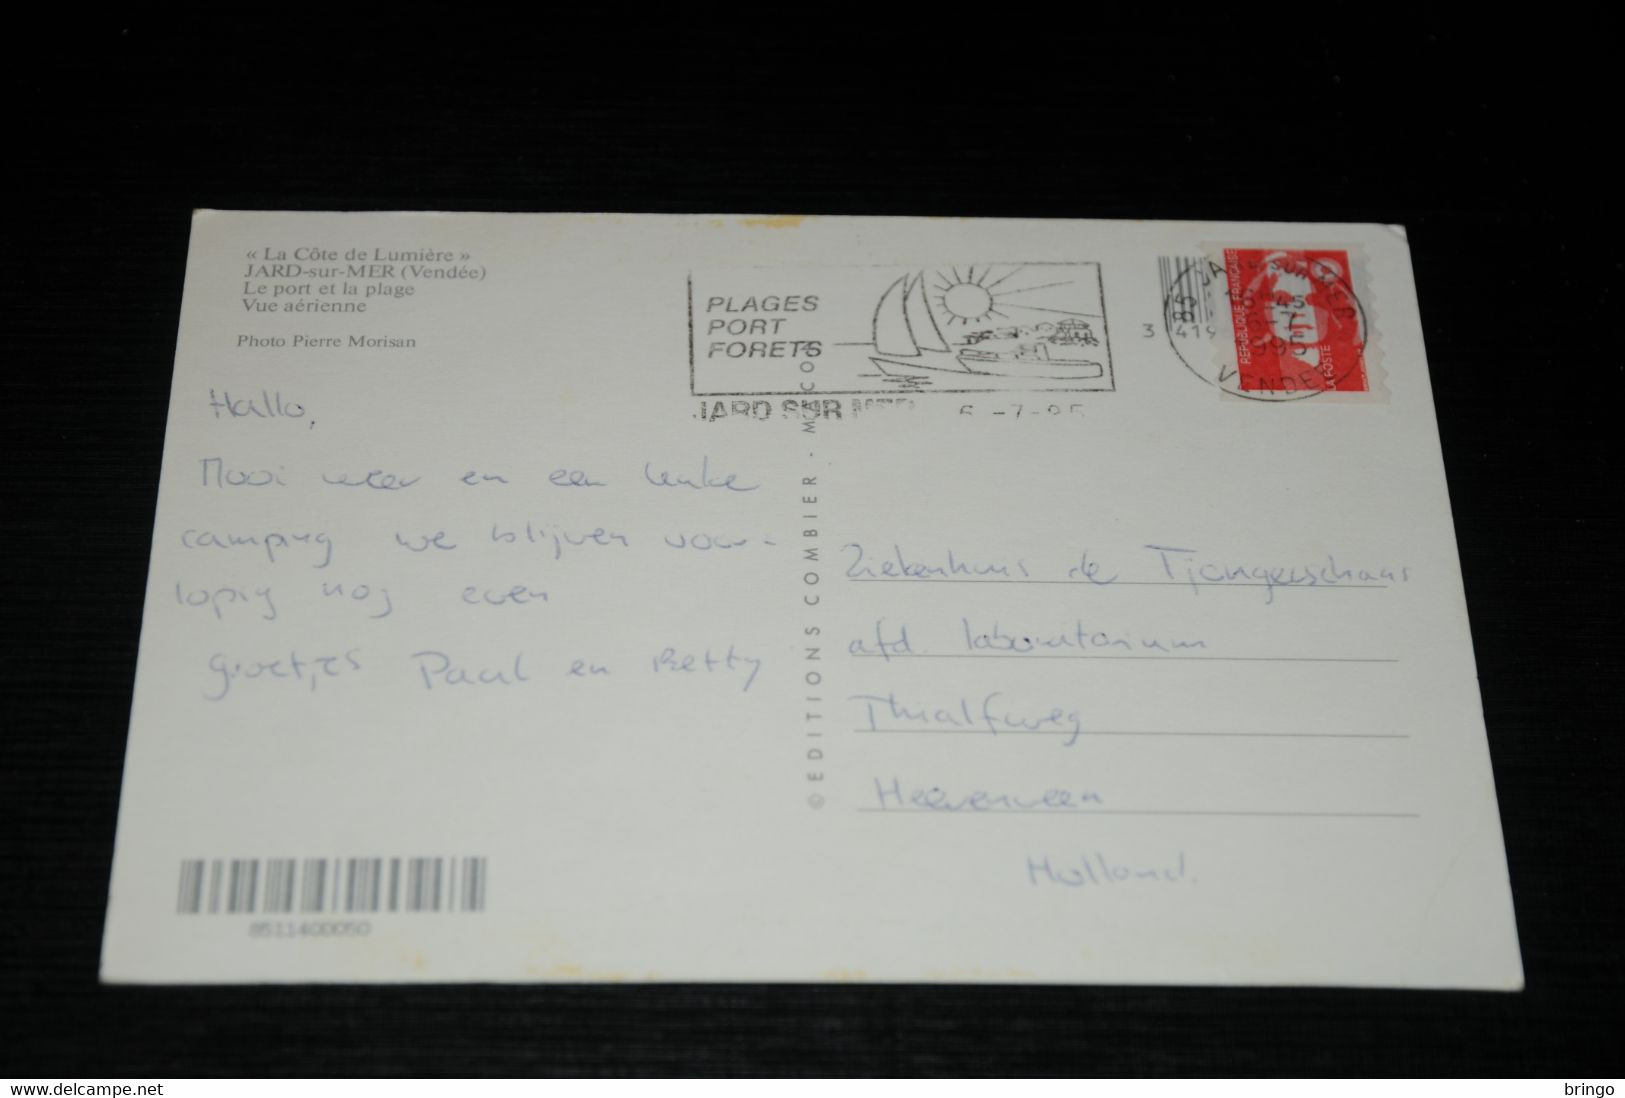 « La Côte de Lumière »
JARD-sur-MER (Vendée)
Le port et la plage
Vue aérienne
Photo Pierre Morisan
PLAGES
PORT
FORETS
JARD SUR MER 6-7-95
3 419
85 JARD SUR MER
VENDEE
REPUBLIQUE FRANÇAISE
LA POSTE
Hallo,
Mooi weer en een leuke
camping we blijven voor-
lopig nog even
groetjes Paul en Betty
© EDITIONS COMBIER - MACON
Ziekenhuis de Tjongerschans
afd. laboratorium
Thialfweg
Heerenveen
Holland.
8511400050
bekijk meer op www.delcampe.net
bringo